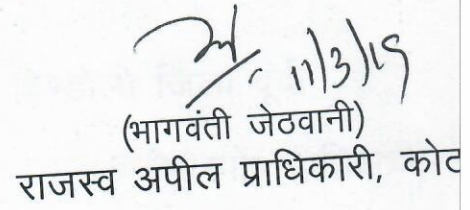 11/3/19
(भागवंती जेठवानी)
राजस्व अपील प्राधिकारी, कोट